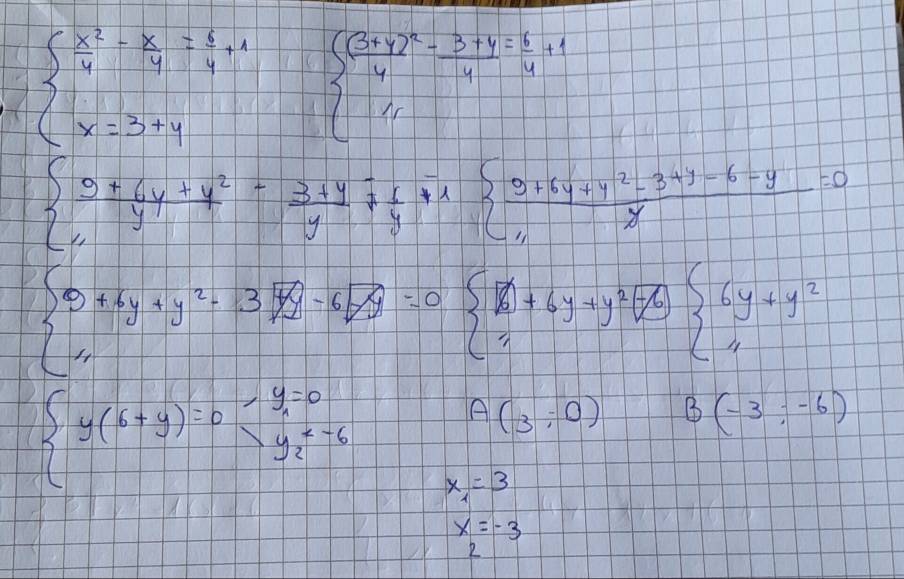 { x²/y - x/y = 6/y + 1
x = 3 + y
{ (3+y)²/y - 3+y/y = 6/y + 1
〃
{ 9 + 6y + y²/y - 3+y/y - 6/y - 1
〃
{ 9 + 6y + y² - 3 + y - 6 - y/y = 0
〃
{ 9 + 6y + y² - 3 +y - 6 -y = 0
〃
{ 6 + 6y + y² -6
〃
{ 6y + y²
〃
{ y(6+y) = 0
y₁ = 0
y₂ = -6
A(3;0)
B(-3;-6)
x₁ = 3
x₂ = -3